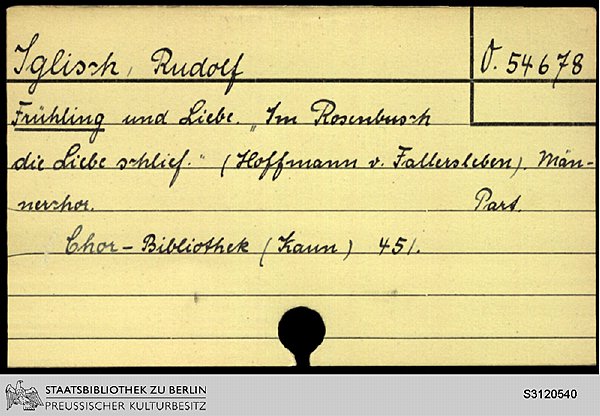 Iglisch, Rudolf
O. 54678
Frühling und Liebe. „Im Rosenbusch
die Liebe schlief.“ (Hoffmann v. Fallersleben). Män-
nerchor. Part.
Chor-Bibliothek (Kaun) 451.
STAATSBIBLIOTHEK ZU BERLIN
PREUSSISCHER KULTURBESITZ
S3120540